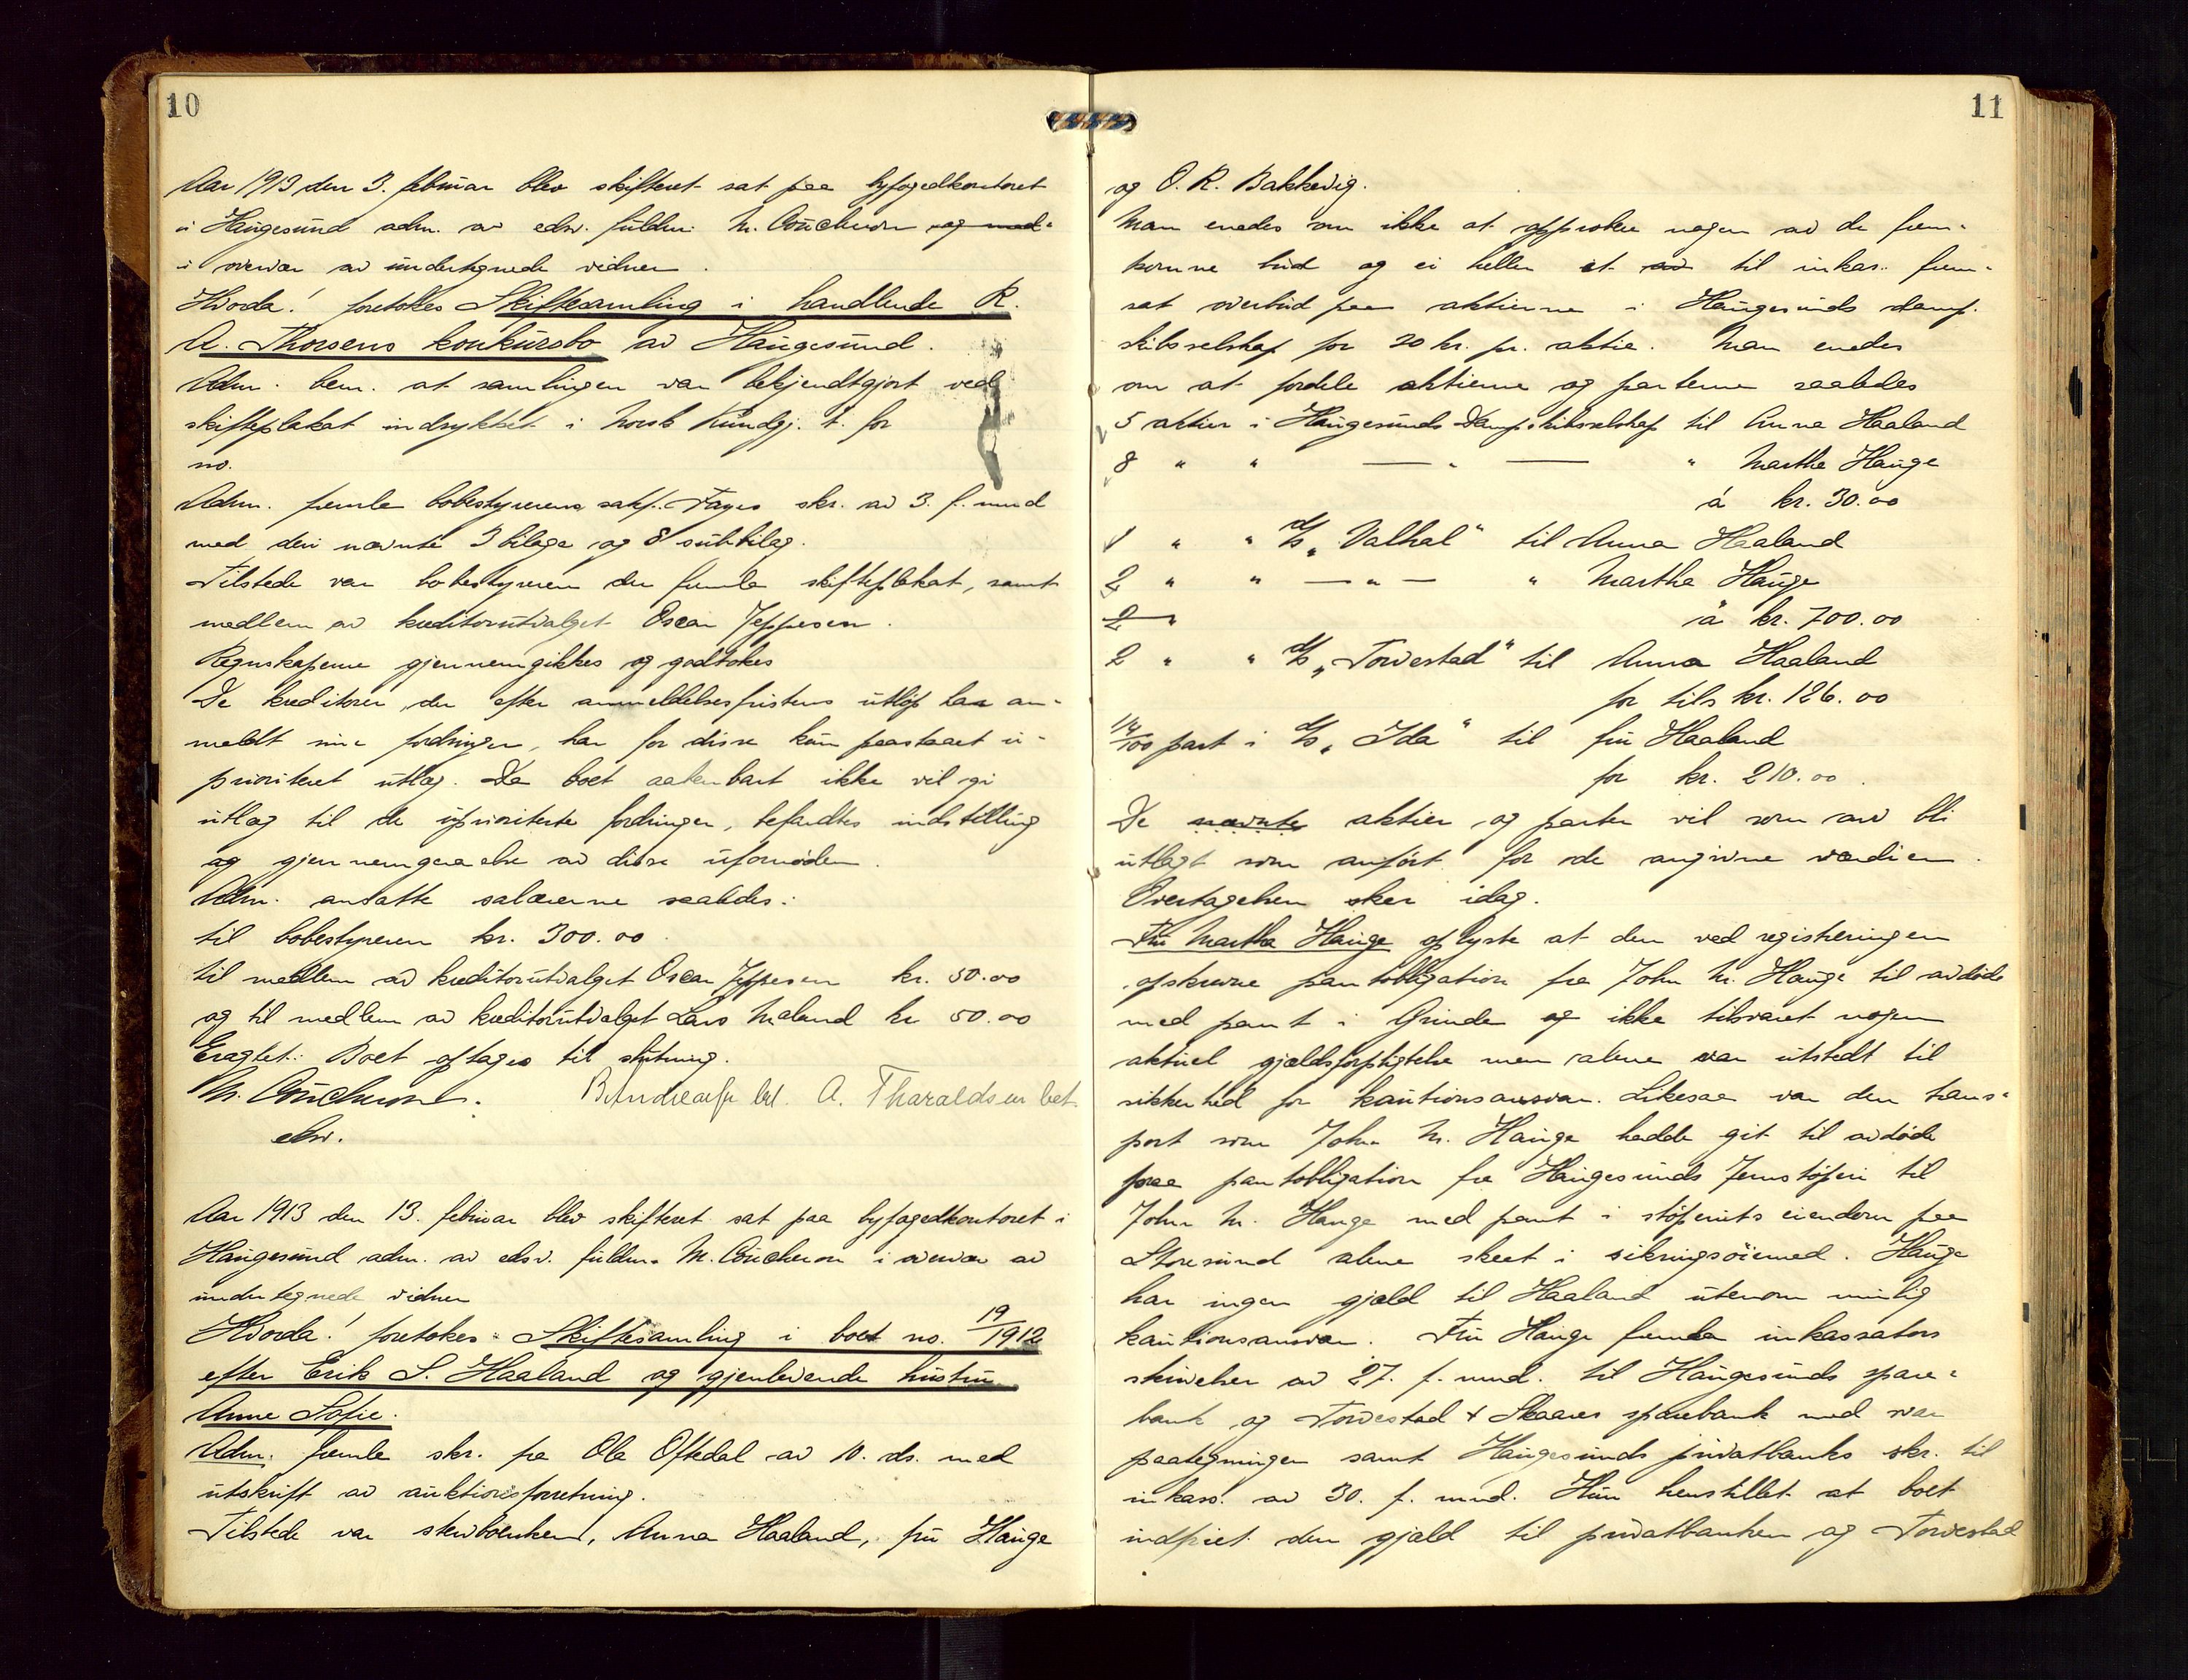 10
Aar 1913 den 3. februar blev skifteret sat paa byfogedkontoret
i Haugesund adm. av edsv. fuldm. M. Coucheron og med-
i overvær av undertegnede vidner.
Hvorda! foretokes Skiftesamling i handlende R.
A. Thorsens konkursbo av Haugesund.
Adm. bem. at samlingen var bekjendtgjort ved
skifteplakat indrykket i Norsk Kundgj. t. for
no.
Adm. fremla bobestyrerens sakf. Fayes skr. av 3. f. mnd
med deri nævnte 3 bilage og 8 subbilag.
Tilstede var bobestyreren der fremla skifteplakat, samt
medlem av kreditorutvalget Oscar Jeppesen.
Regnskaperne gjennemgikkes og godtokes
De kreditorer, der efter anmeldelsesfristens utløp har an-
meldt sine fordringer, har for disse kun paastaaet u-
prioritert utlæg. Da boet aabenbart ikke vil gi
utlæg til de uprioriterte fordringer, befandtes indstilling
og gjennemgaaelse av disse ufornøden.
Adm. ansatte salærerne saaledes:
til bobestyreren kr. 300.00
til medlem av kreditorutvalget Oscar Jeppesen kr. 50.00
og til medlem av kreditorutvalget Lars Maland kr 50.00
Eragtet: Boet optages til slutning.
M. Coucheron. B. Andreasen bet. A. Tharaldsen bet.
edsv.
Aar 1913 den 13. februar blev skifteret sat paa byfogedkontoret i
Haugesund adm. av edsv. fuldm. M. Coucheron i overvær av
undertegnede vidner
Hvorda! foretokes: Skiftesamling i boet no. 19/1912
efter Erik S. Haaland og gjenlevende hustru
Anne Sofie.
Adm. fremla skr. fra Ola Oftedal av 10. ds. med
utskrift av auktionsforretning.
Tilstede var skrivboenken, Anna Haaland, fru Hauge
11
og O. R. Bakkevig.
Man enedes om ikke at approbere nogen av de frem-
komne bud og ei heller et av til inkas. frem-
sat overbud paa aktierne i Haugesunds damp-
skibsselskap for 20 kr. pr. aktie. Man enedes
om at fordele aktierne og parterne saaledes
5 aktier i Haugesunds Dampskibsselskap til Anna Haaland
8 " " — " — " Martha Hauge
à kr. 30.00
1 " " d/s „Valhal" til Anna Haaland
2 " " — " — " Martha Hauge
2 " à kr. 700.00
2 " " d/s „Torvestad" til Anna Haaland
for tils kr. 126.00
14/100 part i d/s „Ida" til fru Haaland
for kr. 210.00.
De nævnte aktier og parter vil som arv bli
utlagt som anført for de angivne værdier.
Overtagelsen sker idag.
Fru Martha Hauge oplyste at den ved registreringen
opskrevne pantobligation fra John M. Hauge til avdøde
med pant i Grinde og ikke tilsvaret nogen
aktuel gjældsforpligtelse men alene var utstedt til
sikkerhed for kautionsansvar. Likesaa var den trans-
port som John M. Hauge hadde git til avdøde
paa pantobligation fra Haugesunds Jernstøperi til
John M. Hauge med pant i støperiets eiendom paa
Storesund alene skeet i sikringsøiemed. Hauge
har ingen gjæld til Haaland utenom mulig
kautionsansvar. Fru Hauge fremla inkassators
skrivelser av 27. f. mnd. til Haugesunds spare-
bank og Torvestad & Skaares sparebank med svar
paategninger samt Haugesunds privatbanks skr. til
inkass. av 30. f. mnd. Hun henstillet at boet
indfriet den gjæld til privatbanken og Torvestad